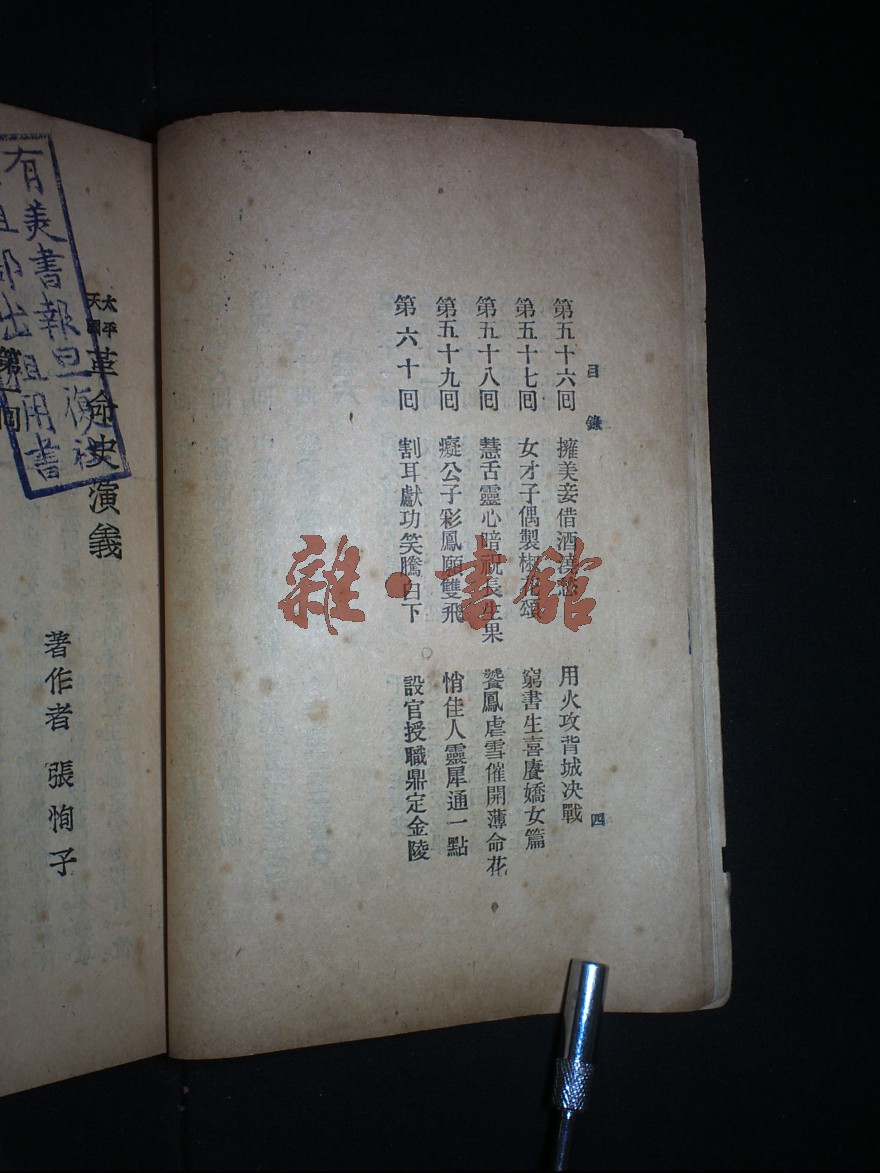 目錄
四
第五十六囘 擁美妾借酒澆愁 用火攻背城决戰
第五十七囘 女才子偶製椒花頌 窮書生喜賡嬌女篇
第五十八囘 慧舌靈心暗祝長生果 饕鳳虐雪催開薄命花
第五十九囘 癡公子彩鳳願雙飛 悄佳人靈犀通一點
第六十囘 割耳獻功笑騰白下 設官授職鼎定金陵
雜·書館
太平天國革命史演義
著作者 張恂子
第 囘
有美書報
出租用書